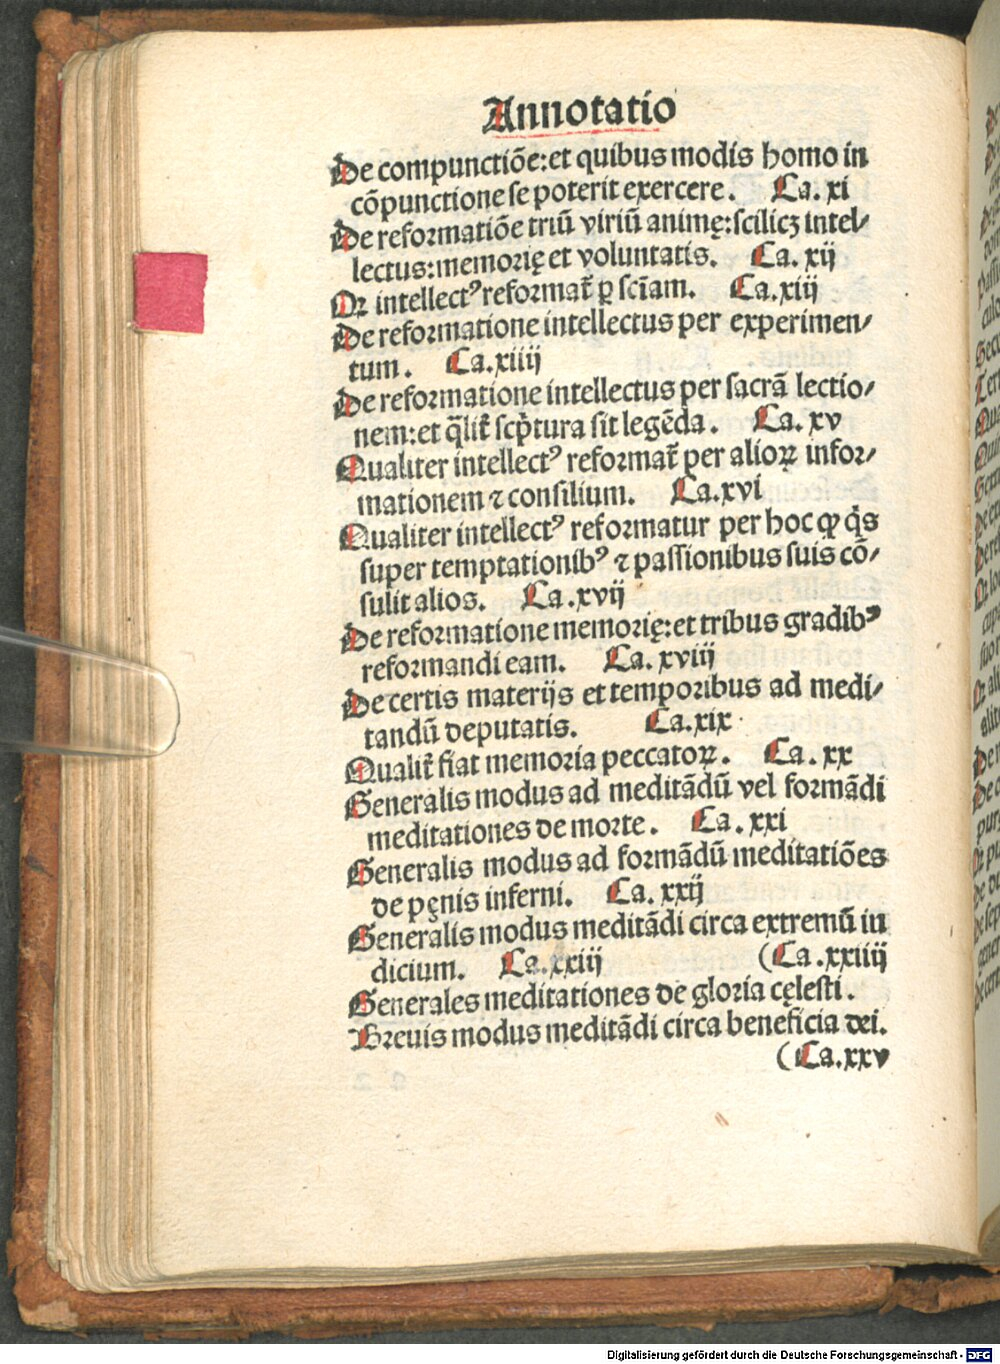 Annotatio
De compunctiõe: et quibus modis homo in
cõpunctione se poterit exercere. Ca. xi
De reformatiõe triũ viriũ animę: scilicꝫ intel⸗
lectus: memorię et voluntatis. Ca. xij
Qꝛ intellectꝰ reformat̃ ꝑ sciam̃. Ca. xiij
De reformatione intellectus per experimen⸗
tum. Ca. xiiij
De reformatione intellectus per sacrã lectio⸗
nem: et q̃lit̃ scp̃tura sit legẽda. Ca. xv
Qualiter intellectꝰ reformat̃ per alioꝝ infor⸗
mationem ⁊ consilium. Ca. xvi
Qualiter intellectꝰ reformatur per hoc ꝙ q̇s
super temptationibꝰ ⁊ passionibus suis cõ⸗
sulit alios. Ca. xvij
De reformatione memorię: et tribus gradibꝰ
reformandi eam. Ca. xviij
De certis materijs et temporibus ad medi⸗
tandũ deputatis. Ca. xix
Qualit̃ fiat memoria peccatoꝝ. Ca. xx
Generalis modus ad meditãdũ vel formãdi
meditationes de morte. Ca. xxi
Generalis modus ad formãdũ meditatiões
de pęnis inferni. Ca. xxij
Generalis modus meditãdi circa extremũ iu
dicium. Ca. xxiij (Ca. xxiiij
Generales meditationes de gloria cęlesti.
Brevis modus meditãdi circa beneficia dei.
(Ca. xxv
Digitalisierung gefördert durch die Deutsche Forschungsgemeinschaft - DFG